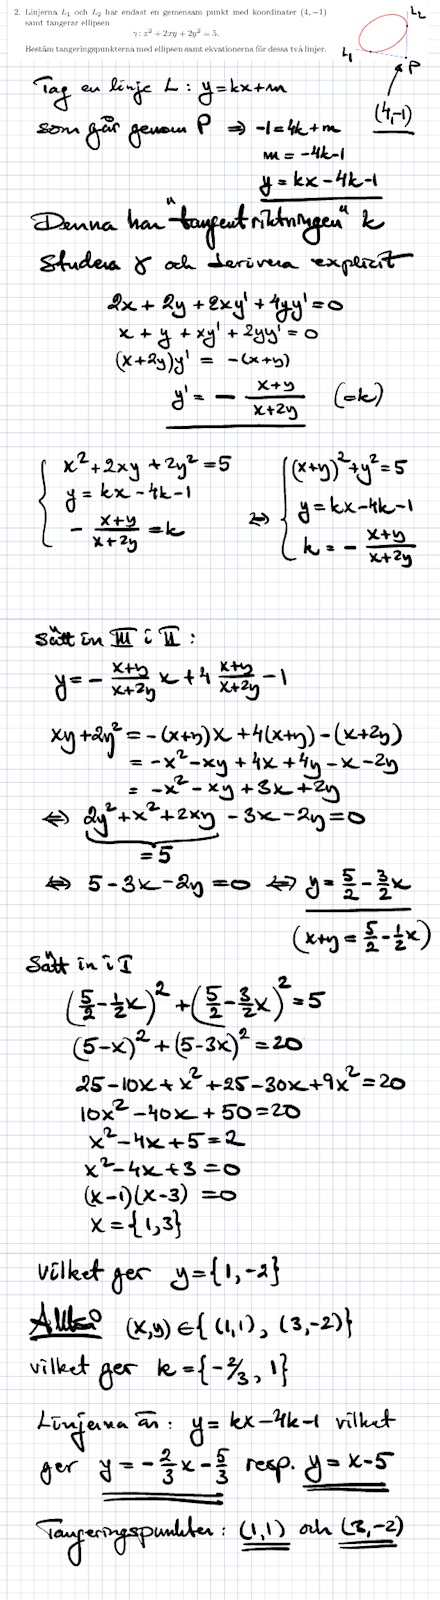 2. Linjerna L₁ och L₂ har endast en gemensam punkt med koordinater (4, −1)
samt tangerar ellipsen
γ : x² + 2xy + 2y² = 5.
Bestäm tangeringspunkterna med ellipsen samt ekvationerna för dessa två linjer.
L₂
L₁
P
(4,-1)
Tag en linje L: y=kx+m
som går genom P ⇒ -1=4k+m
m=-4k-1
y=kx-4k-1
Denna har "tangentriktningen" k
Studera γ och derivera explicit
2x+2y+2xy'+4yy'=0
x+y+xy'+2yy'=0
(x+2y)y' = -(x+y)
y' = - (x+y)/(x+2y) (=k)
{ x²+2xy+2y²=5 ⇔ { (x+y)²+y²=5
y=kx-4k-1 y=kx-4k-1
- (x+y)/(x+2y) = k k = - (x+y)/(x+2y)
Sätt in III i II:
y = - (x+y)/(x+2y) x + 4 (x+y)/(x+2y) - 1
xy+2y² = -(x+y)x+4(x+y)-(x+2y)
= -x²-xy+4x+4y-x-2y
= -x²-xy+3x+2y
⇔ 2y²+x²+2xy-3x-2y=0
=5
⇔ 5-3x-2y=0 ⇔ y=5/2-3/2x
(x+y=5/2-1/2x)
Sätt in i I
(5/2-1/2x)²+(5/2-3/2x)²=5
(5-x)²+(5-3x)²=20
25-10x+x²+25-30x+9x²=20
10x²-40x+50=20
x²-4x+5=2
x²-4x+3=0
(x-1)(x-3)=0
x={1,3}
vilket ger y={1,-2}
Alltså (x,y)∈{(1,1), (3,-2)}
vilket ger k={-2/3, 1}
Linjerna är: y=kx-4k-1 vilket
ger y=-2/3x-5/3 resp. y=x-5
Tangeringspunkter: (1,1) och (3,-2)